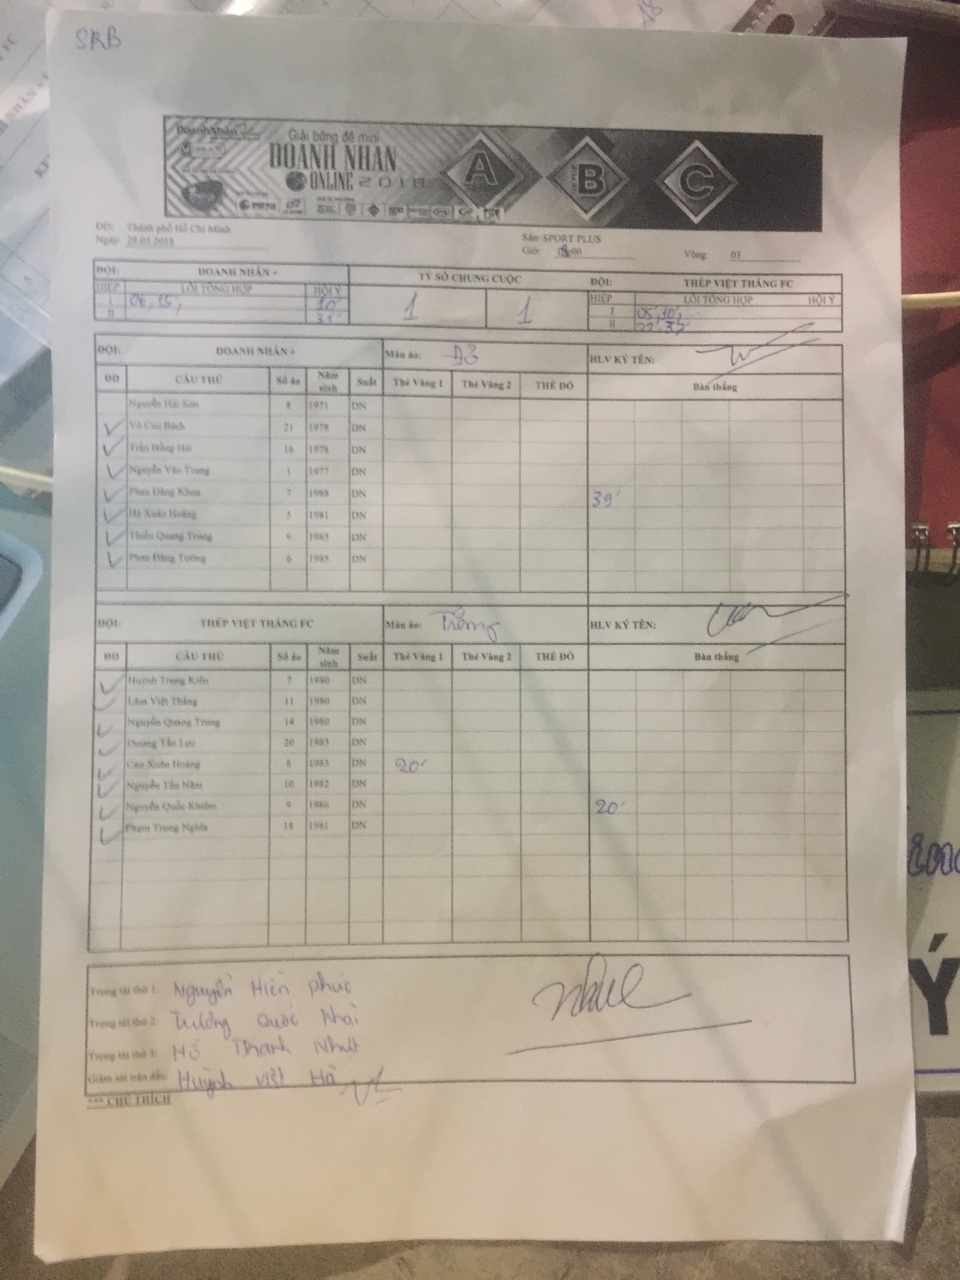 SRB
Giải bóng đá mini
DOANH NHÂN
ONLINE 2018
A B C
ĐĐ: Thành phố Hồ Chí Minh
Ngày: 29.03.2018
Sân: SPORT PLUS
Giờ: 18:00
Vòng: 03
ĐỘI: DOANH NHÂN + TỶ SỐ CHUNG CUỘC ĐỘI: THÉP VIỆT THẮNG FC
HIỆP LỖI TỔNG HỢP HỘI Ý 1 1 HIỆP LỖI TỔNG HỢP HỘI Ý
I 06', 15', 10' I 05', 10',
II 31' II 22', 37'
ĐỘI: DOANH NHÂN + Màu áo: Đỏ HLV KÝ TÊN:
ĐD CẦU THỦ Số áo Năm sinh Suất Thẻ Vàng 1 Thẻ Vàng 2 THẺ ĐỎ Bàn thắng
Nguyễn Hải Sơn 8 1971 DN
✓ Võ Cao Bách 21 1978 DN
✓ Trần Hồng Hải 16 1978 DN
✓ Nguyễn Văn Trung 1 1977 DN
✓ Phan Đăng Khoa 7 1988 DN 39'
✓ Hà Xuân Hoàng 5 1981 DN
✓ Thiều Quang Trung 9 1985 DN
✓ Phan Đăng Tường 6 1985 DN
ĐỘI: THÉP VIỆT THẮNG FC Màu áo: Trắng HLV KÝ TÊN:
ĐD CẦU THỦ Số áo Năm sinh Suất Thẻ Vàng 1 Thẻ Vàng 2 THẺ ĐỎ Bàn thắng
✓ Huỳnh Trung Kiên 7 1980 DN
✓ Lâm Việt Thắng 11 1980 DN
✓ Nguyễn Quang Trung 14 1980 DN
✓ Dương Tấn Lực 20 1983 DN
✓ Cao Xuân Hoàng 8 1983 DN 20'
✓ Nguyễn Tấn Năm 10 1982 DN
✓ Nguyễn Quốc Khiêm 9 1986 DN 20'
✓ Phạm Trọng Nghĩa 18 1981 DN
Trọng tài thứ 1: Nguyễn Hiền Phúc
Trọng tài thứ 2: Trương Quốc Nhài
Trọng tài thứ 3: Hồ Thanh Nhựt
Giám sát trận đấu: Huỳnh Việt Hà
*** CHÚ THÍCH
Ý